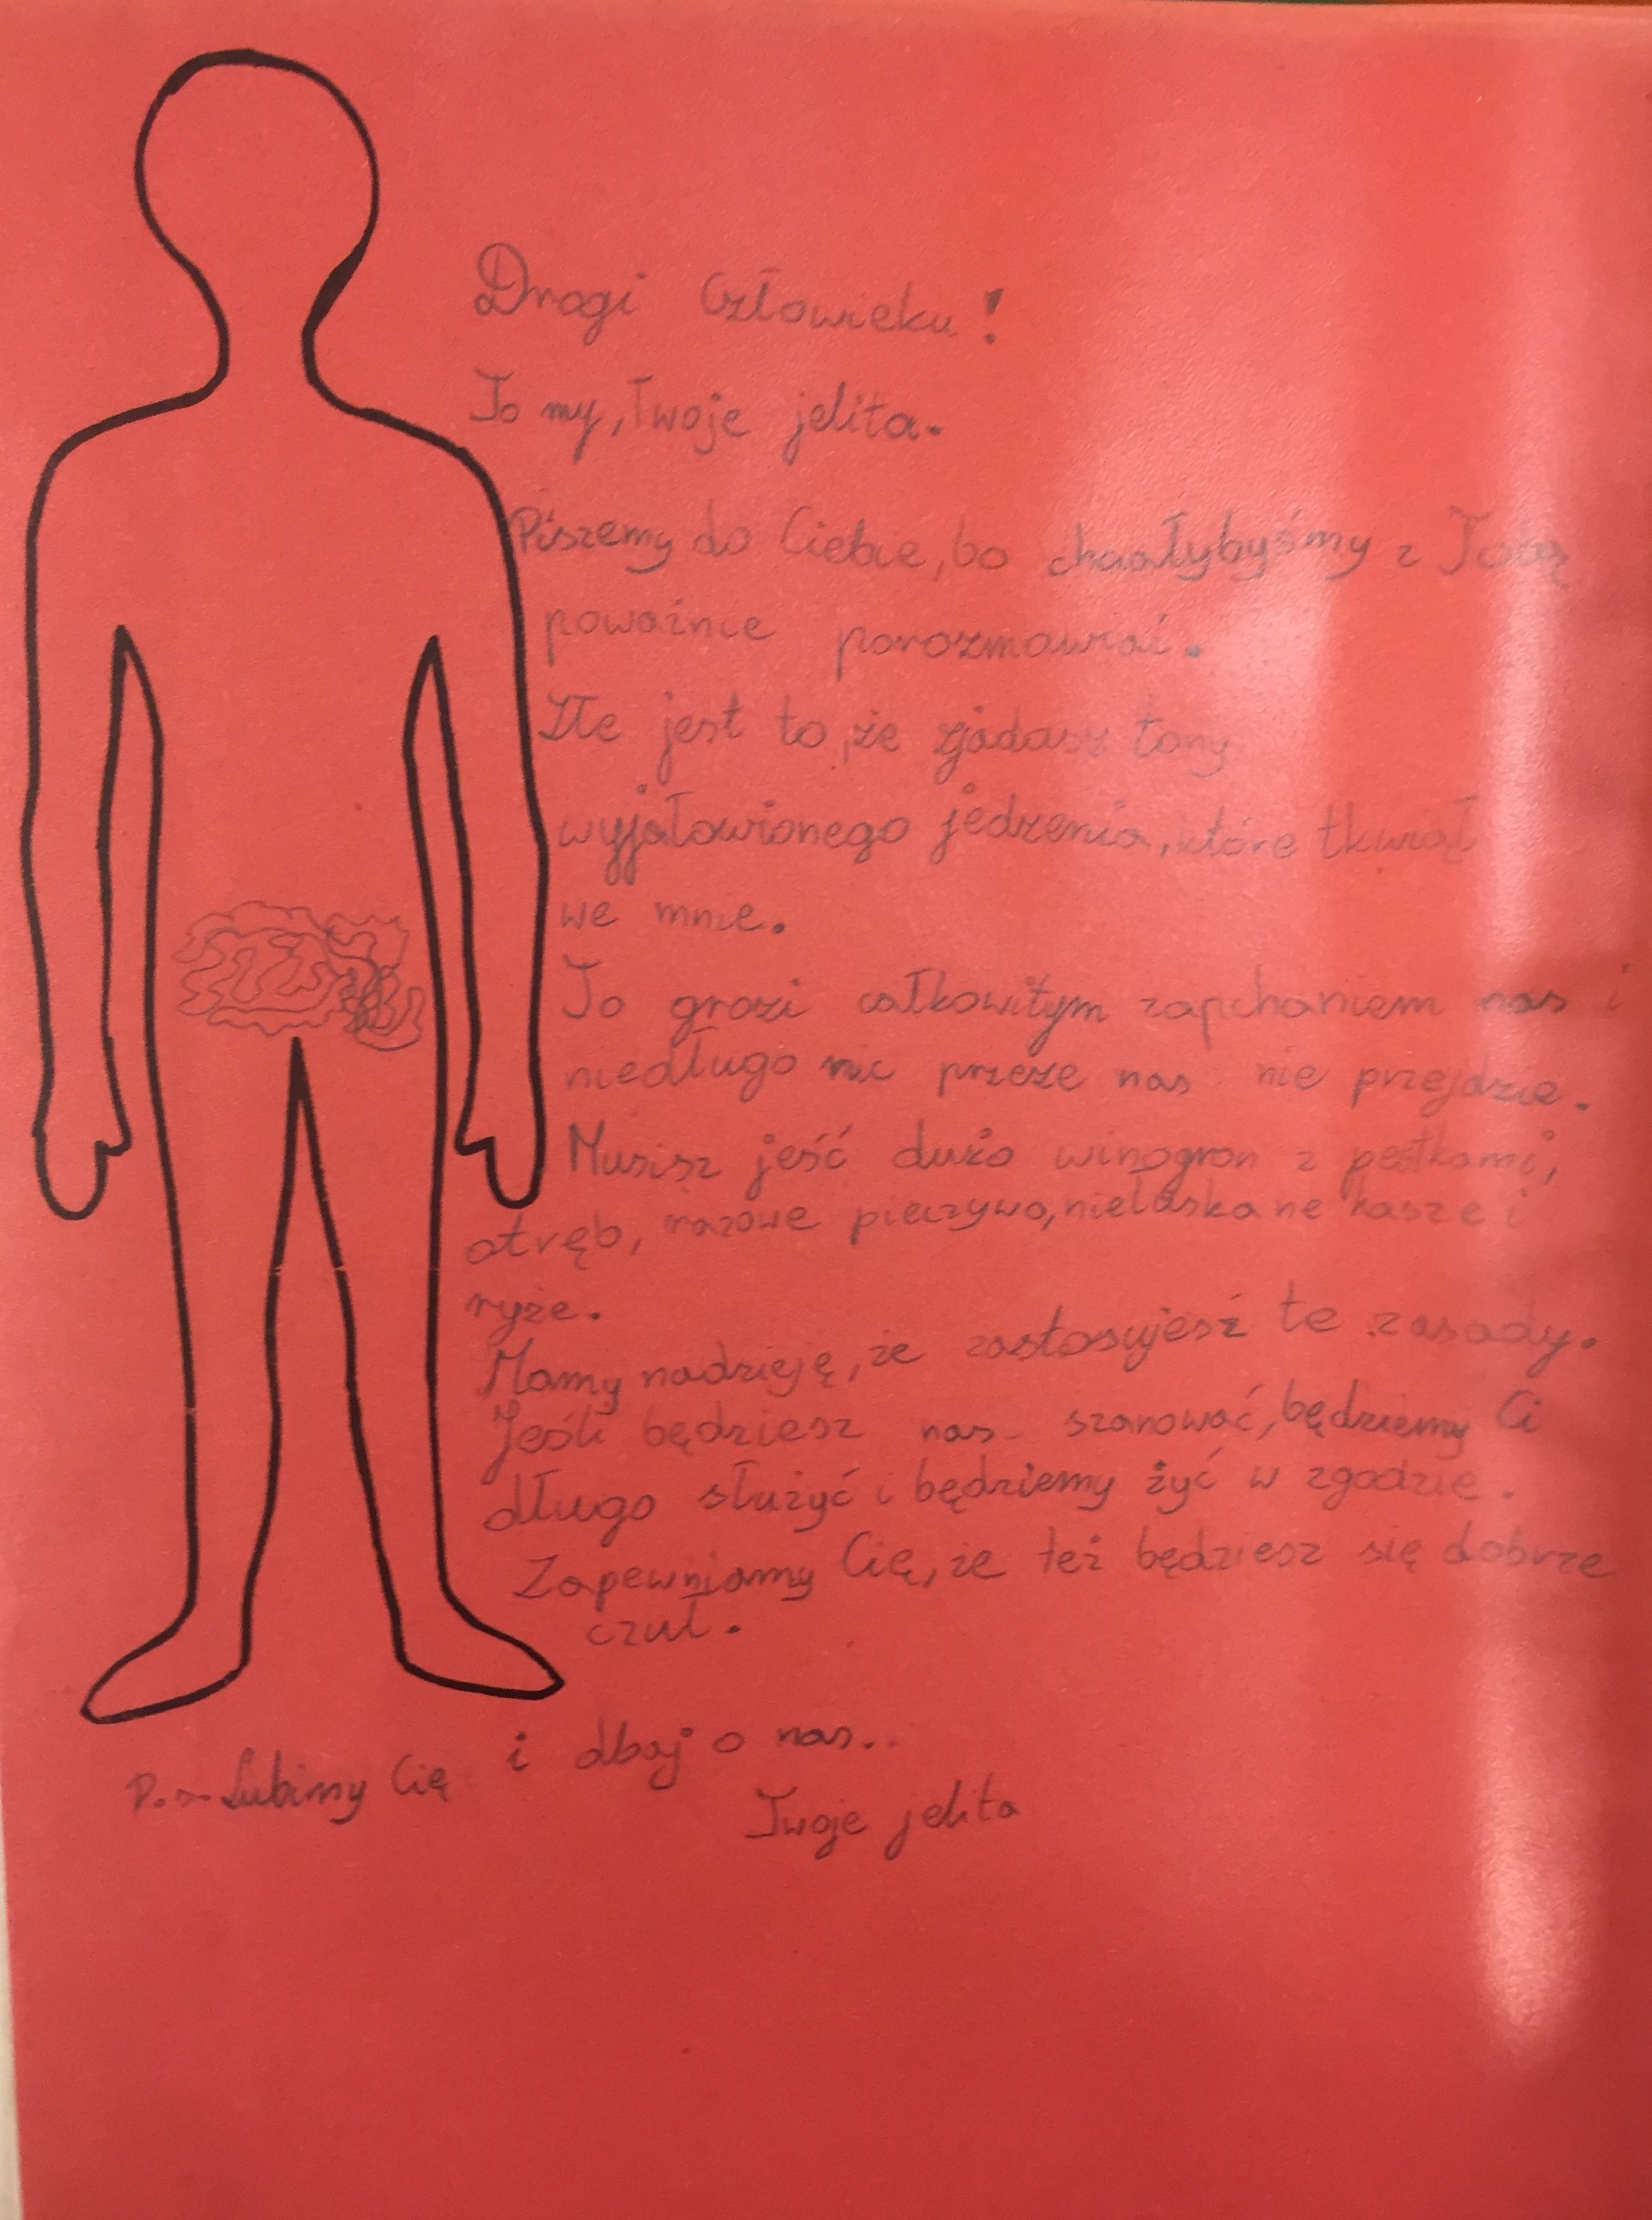 Drogi Człowieku!
To my, Twoje jelita.
Piszemy do Ciebie, bo chciałybyśmy z Tobą
poważnie porozmawiać.
Złe jest to, że zjadasz tony
wyjałowionego jedzenia, które
we mnie.
To grozi całkowitym zapchaniem nas i
niedługo nic przeze nas nie przejdzie.
Musisz jeść dużo winogron z pestkami,
otręb, razowe pieczywo, niełuskane kasze i
ryże.
Mamy nadzieję, że zastosujesz te zasady.
Jeśli będziesz nas szanować, będziemy Ci
długo służyć i będziemy żyć w zgodzie.
Zapewniamy Cię, że też będziesz się dobrze
czuł.
P.s- Lubimy Cię i dbaj o nas..
Twoje jelita